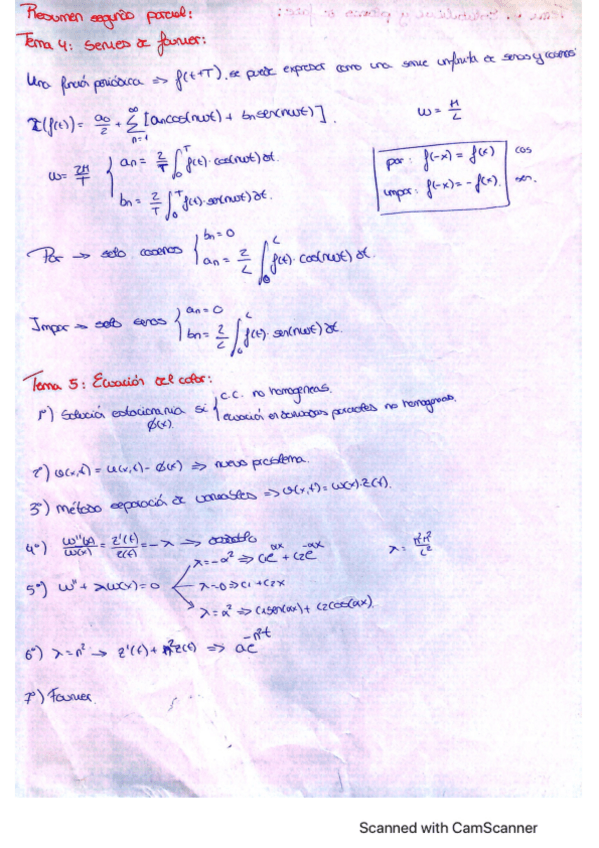 Resumen segundo parcial:
Tema 4: Series de fourier:
Una función periódica => f(t+T), se puede expresar como una serie infinita de senos y cosenos
I(f(t)) = a₀/2 + ∑_{n=1}^{∞} [an cos(nωt) + bn sen(nωt)]. ω = Π/L
ω = 2Π/T { an = 2/T ∫₀ᵀ f(t)·cos(nωt)dt. par: f(-x) = f(x) cos
bn = 2/T ∫₀ᵀ f(t)·sen(nωt)dt. impar: f(-x) = -f(x). sen.
Par → solo cosenos { bn = 0
an = 2/L ∫₀ᴸ f(t)·cos(nωt)dt.
Impar → solo senos { an = 0
bn = 2/L ∫₀ᴸ f(t)·sen(nωt)dt.
Tema 5: Ecuación del calor:
1º) Solución estacionaria si { c.c. no homogéneas.
Ø(x) ecuación en derivadas parciales no homogénea.
2º) v(x,t) = u(x,t) - Ø(x) => nuevo problema.
3º) Método separación de variables => v(x,t) = w(x)·z(t).
4º) w''(x)/w(x) = z'(t)/z(t) = -λ → λ = n²π²/L²
5º) w'' + λw(x) = 0 λ = -a² => c₁e^{ax} + c₂e^{-ax}
λ = 0 => c₁ + c₂x
λ = a² => c₁sen(ax) + c₂cos(ax)
6º) λ = n² → z'(t) + n²z(t) => ae^{-n²t}
7º) Fourier.
Scanned with CamScanner